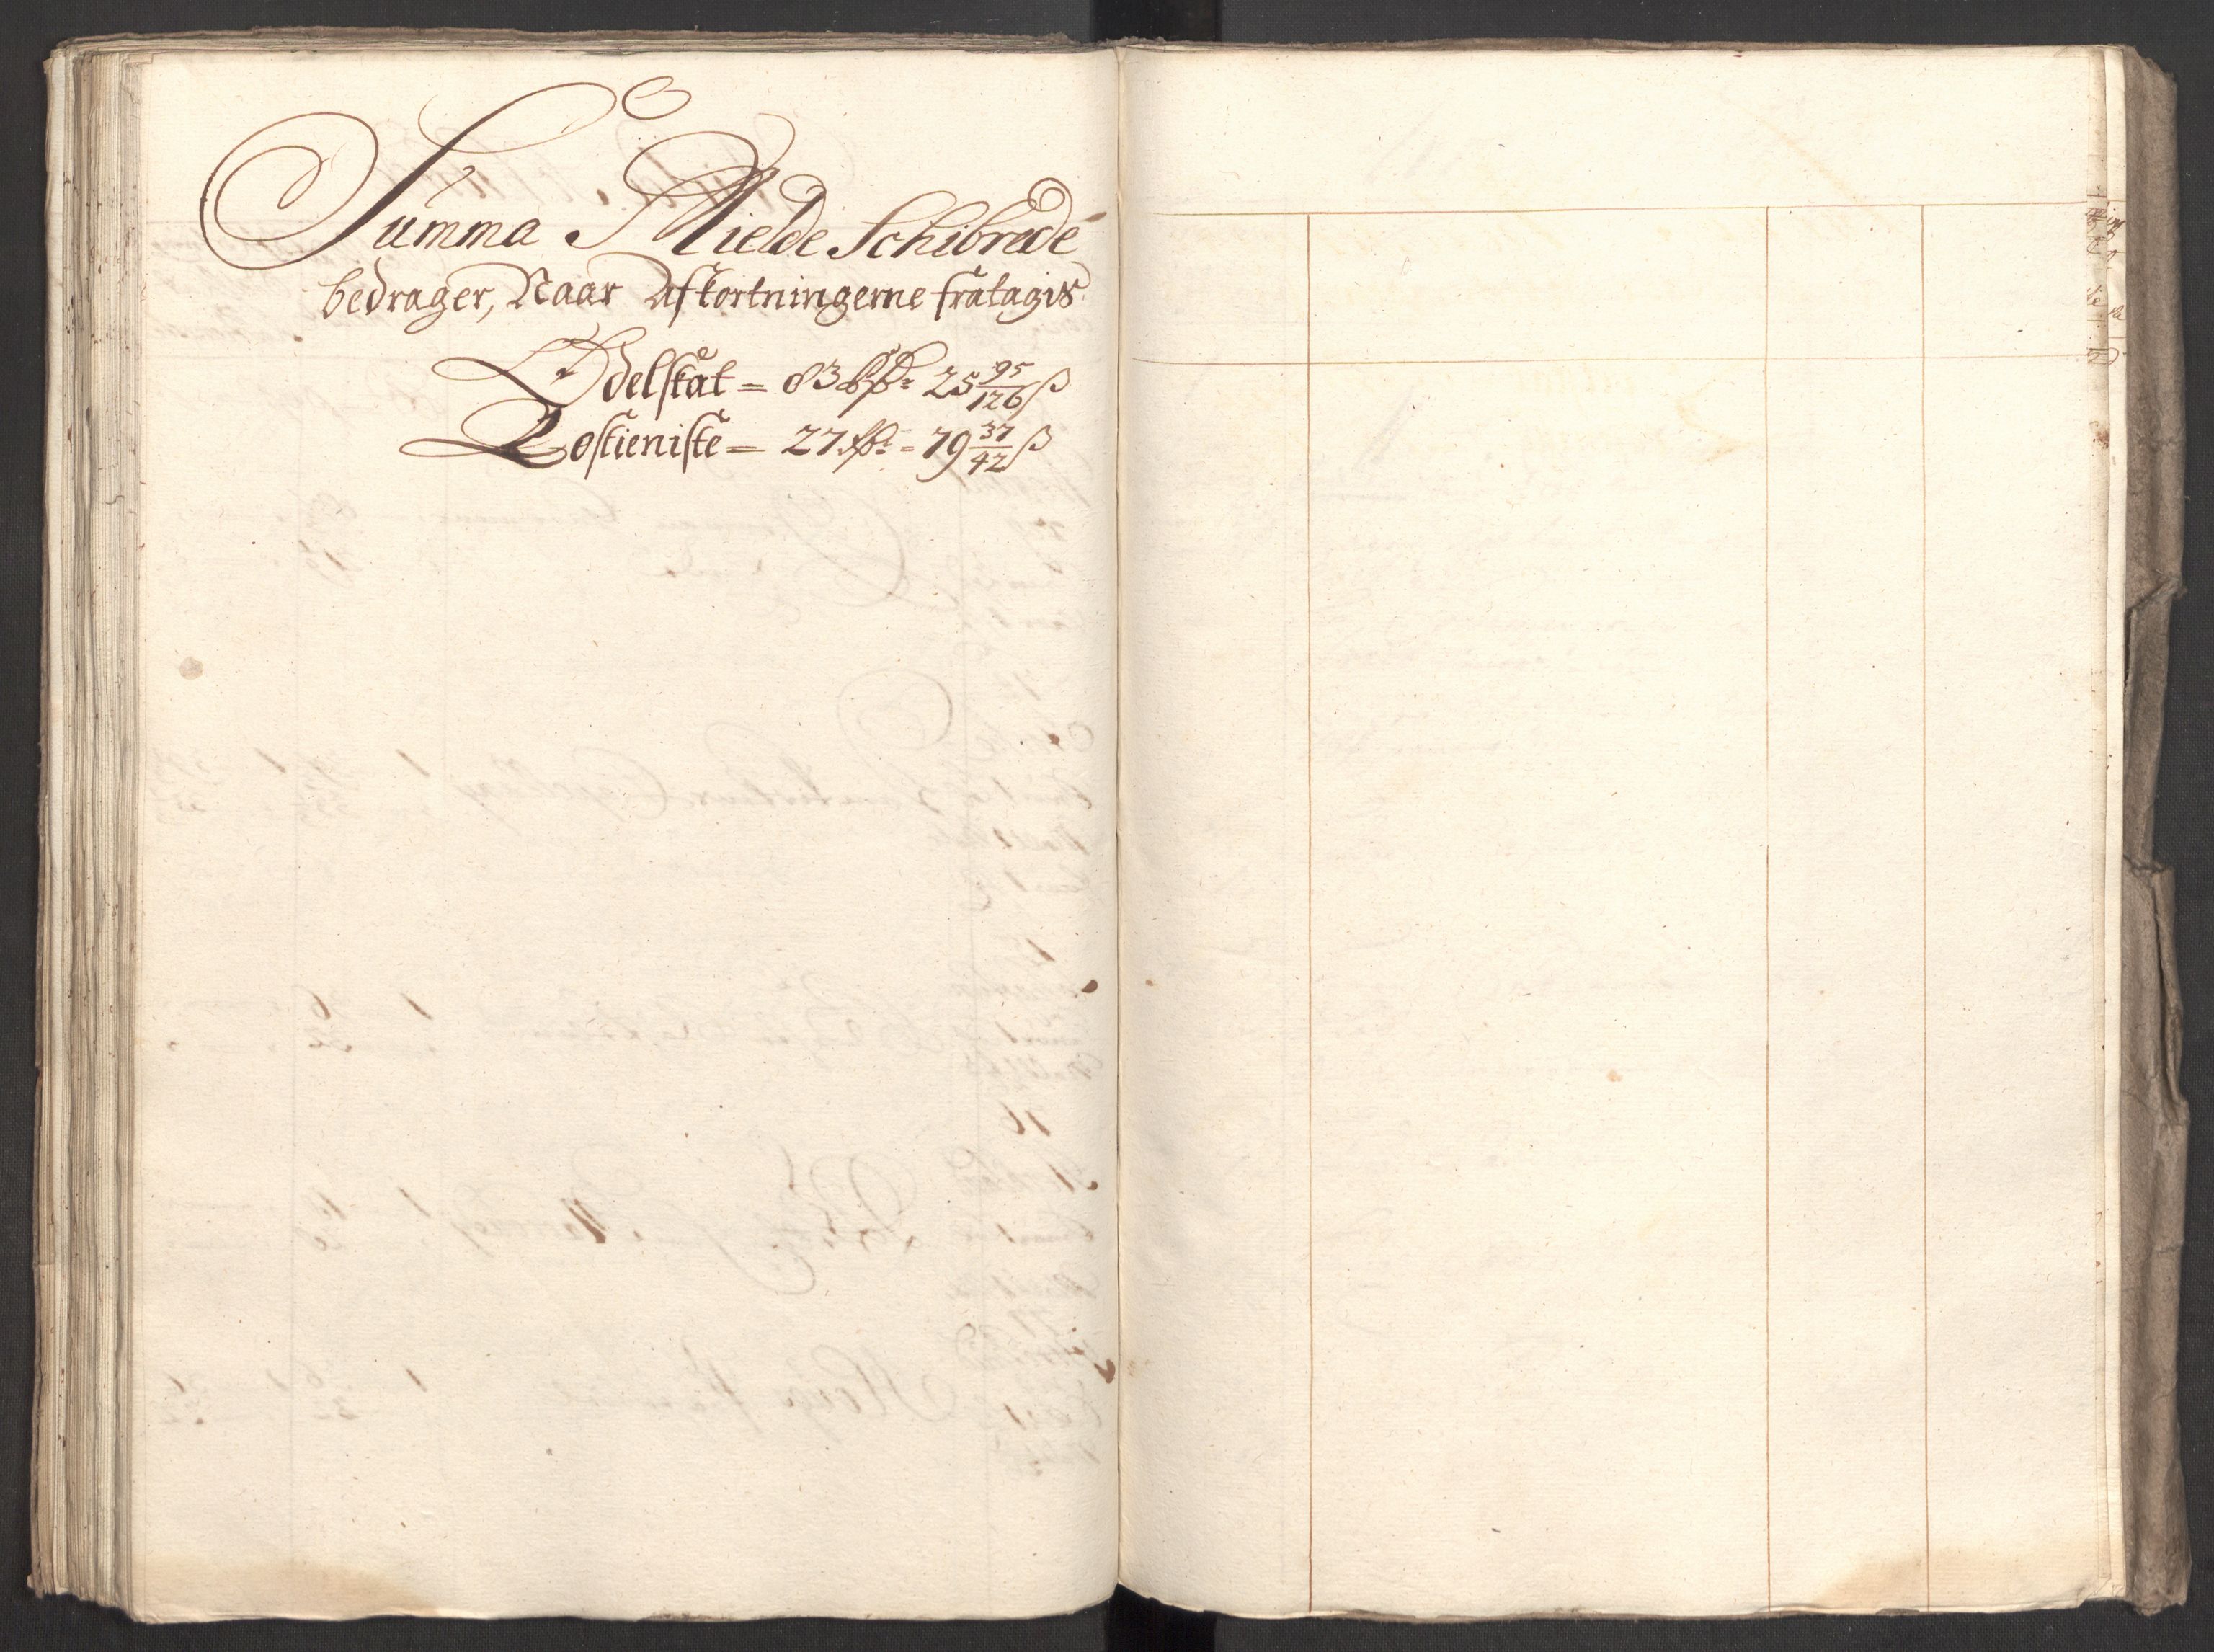 Summa I Mielde Schibrede
bedrager, Naar Afkortningerne fratagis
Odelskat = 83 Rdr 25 95/126 ß
Rostieniste = 27 Rdr = 79 37/42 ß